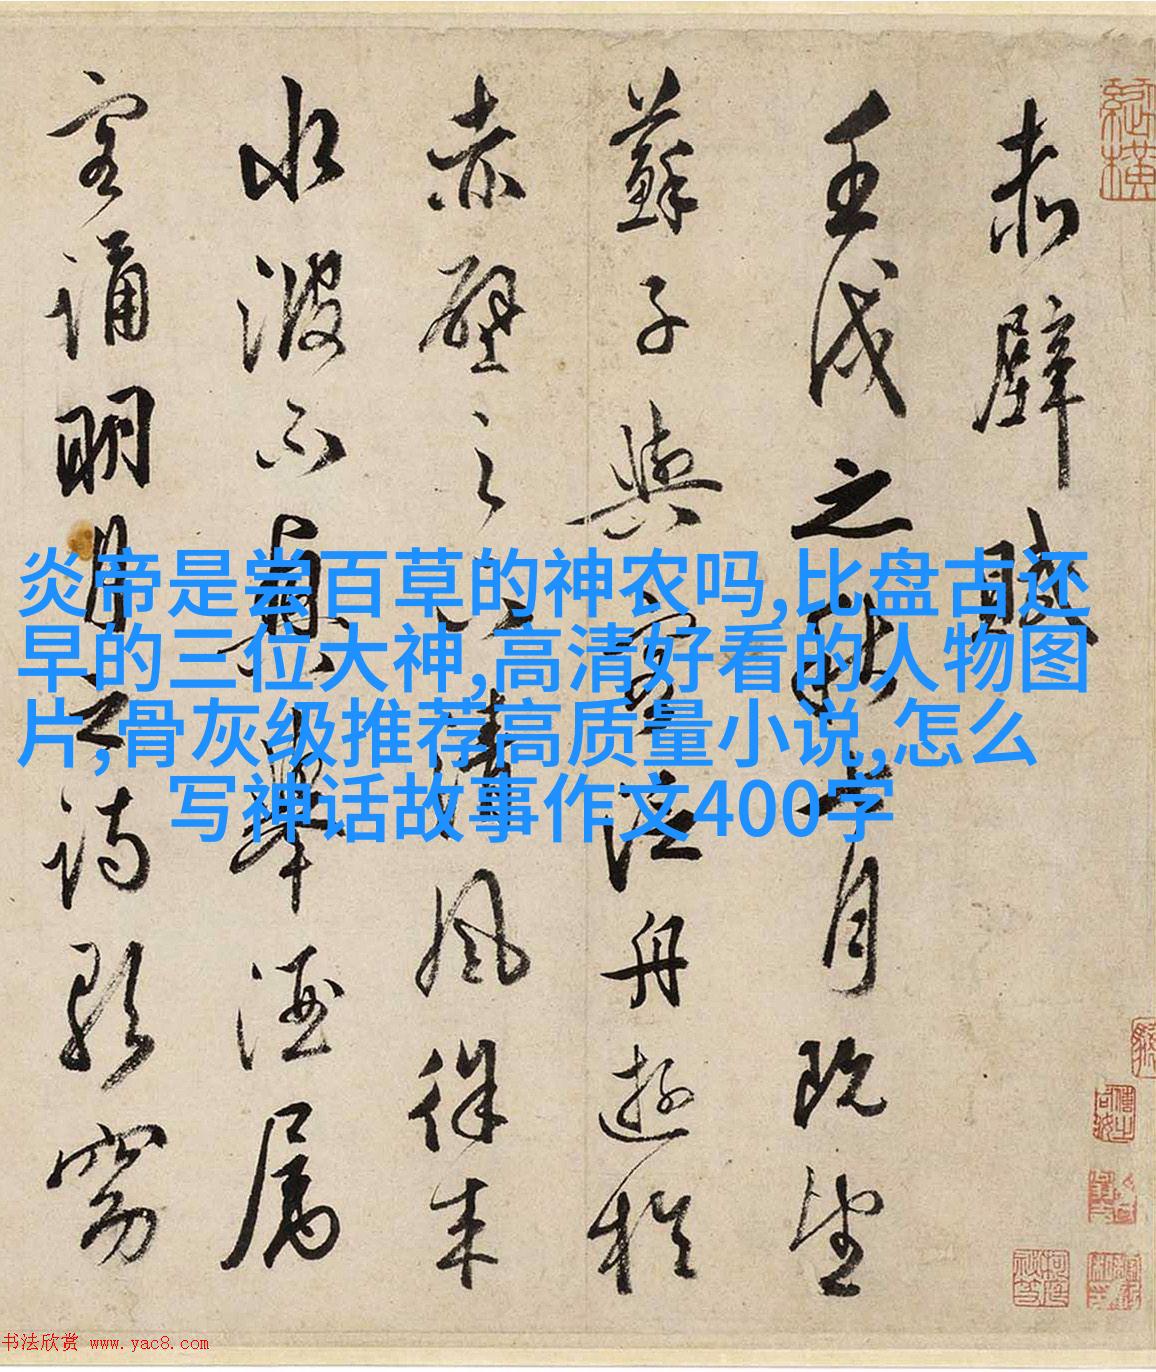 赤壁賦
壬戌之秋七月既望
蘇子與客泛舟遊於
赤壁之下清風徐來
水波不興舉酒屬
客誦明月之詩歌窈
炎帝是尝百草的神农吗,比盘古还
早的三位大神,高清好看的人物图
片,骨灰级推荐高质量小说,怎么
写神话故事作文400字
书法欣赏 www.yac8.com